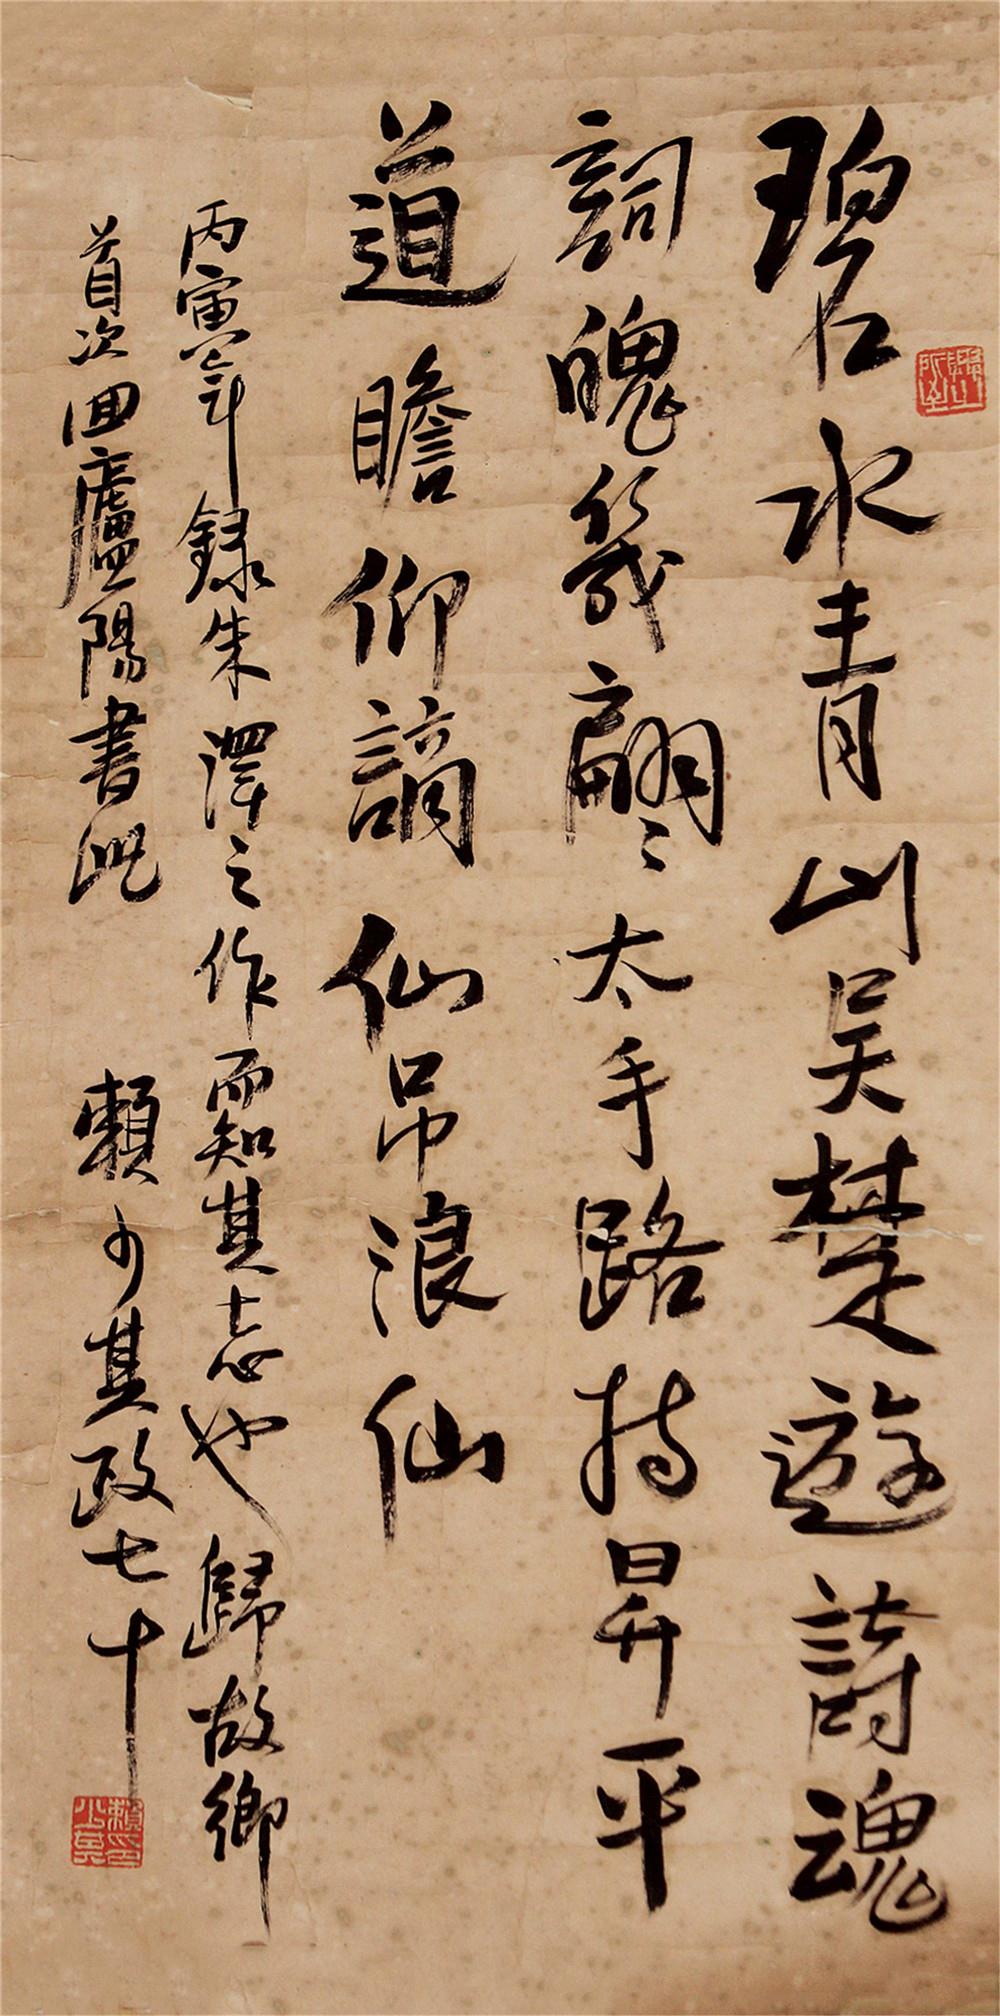 碧水青山吳楚遊詩魂
詞魄幾翩〻太手路持昇平
道瞻仰謫仙吊浪仙
丙寅年錄朱澤之作而知其志也歸故鄉
首次回廬陽書此 賴少其政七十
賴少其印